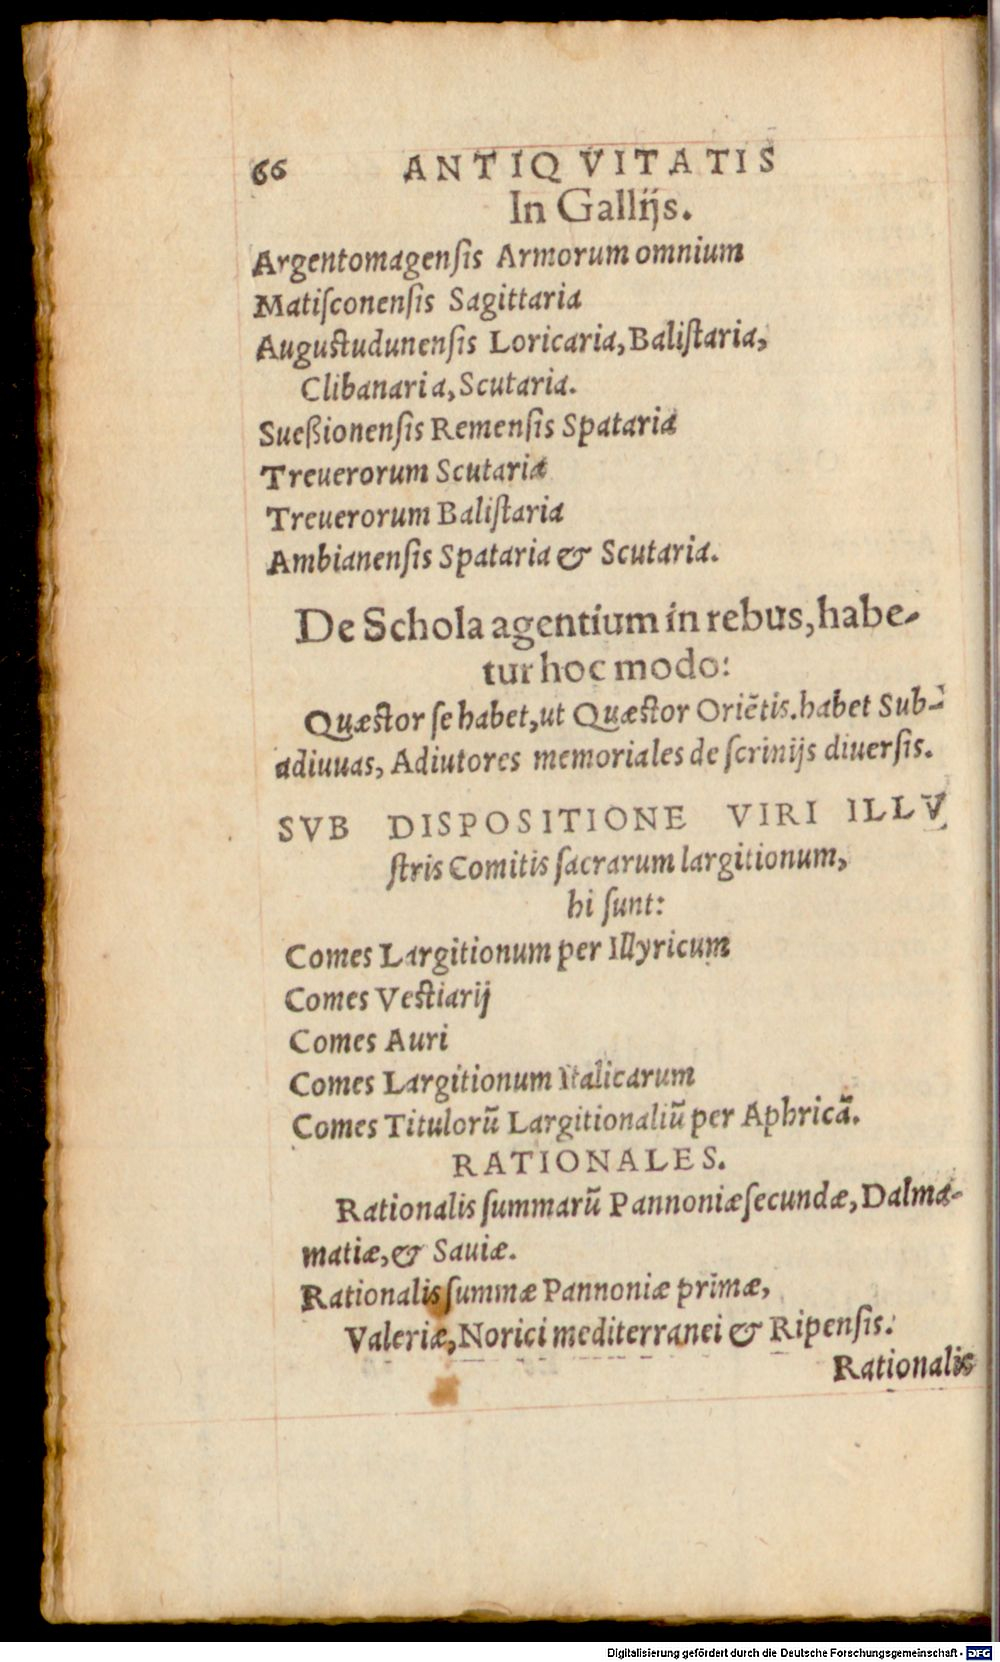 66 ANTIQVITATIS
In Gallijs.
Argentomagensis Armorum omnium
Matiſconenſis Sagittaria
Auguſtudunenſis Loricaria, Baliſtaria,
Clibanaria, Scutaria.
Sueßionenſis Remenſis Spataria
Treuerorum Scutaria
Treuerorum Baliſtaria
Ambianenſis Spataria & Scutaria.
De Schola agentium in rebus, habe-
tur hoc modo:
Quæſtor ſe habet, ut Quæſtor Oriẽtis. habet Sub-
adiuuas, Adiutores memoriales de ſcrinijs diuerſis.
SVB DISPOSITIONE VIRI ILLV
ſtris Comitis ſacrarum largitionum,
hi ſunt:
Comes Largitionum per Illyricum
Comes Veſtiarij
Comes Auri
Comes Largitionum Italicarum
Comes Titulorũ Largitionaliũ per Aphricã.
RATIONALES.
Rationalis ſummarũ Pannoniæ ſecundæ, Dalma-
matiæ, & Sauiæ.
Rationalis ſummæ Pannoniæ primæ,
Valeriæ, Norici mediterranei & Ripenſis.
Rationalis
Digitalisierung gefördert durch die Deutsche Forschungsgemeinschaft - DFG